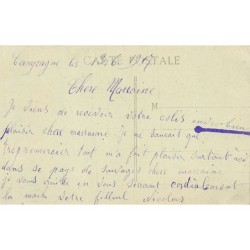 CARTE POSTALE
Campagne le 3 6 1917
Chere Marraine
M
Je viens de recevoir votre colis
plaisir chere marraine je ne saurait que
vous remercier tout m'a fait plaisir surtout
dans se pays de sauvages chere marraine
je vous quitte en vous serrant cordialement
la main votre filleul Nicolas